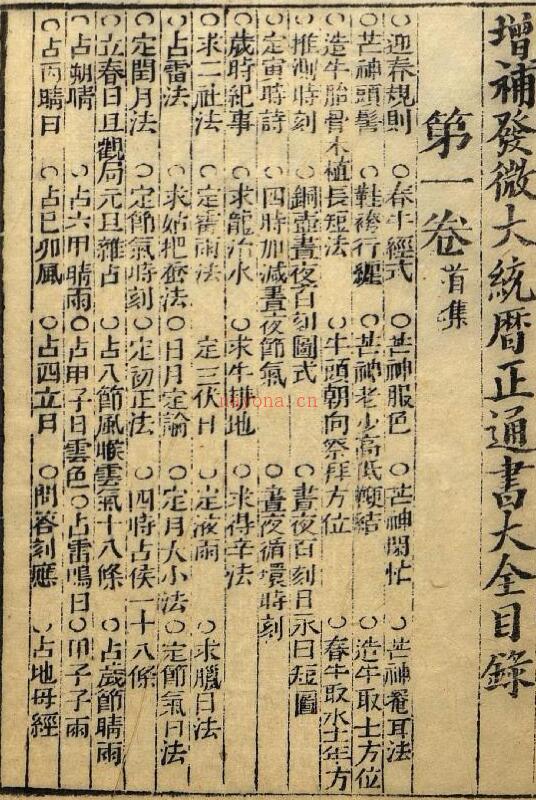 增補發微大統曆正通書大全目錄
第一卷 首集
○迎春規則 ○春牛經式 ○芒神服色 ○芒神閑忙 ○芒神䍩耳法
○芒神頭髻 ○鞋褲行纏 ○芒神老少高低 鞭結 ○造牛取土方位
○造牛胎骨木植長短法 ○牛頭朝向祭拜方位 ○春牛取水土年方
○推測時刻 ○銅壺晝夜百刻圖式 ○晝夜百刻日永日短圖
○定寅時詩 ○四時加減晝夜節氣 ○晝夜循環時刻
○歲時紀事 ○求龍治水 ○求牛耕地 ○求得辛法
○求二社法 ○定霉雨法 定三伏日 ○定液雨 ○求臘日法
○占雷法 ○求姑把蚕法 ○日月定論 ○定月大小法 ○定節氣日法
○定閏月法 ○定節氣時刻 ○定初正法 ○四時占候一十八條
○立春日且觀局 元旦雜占 ○占八節風喉雲氣十八條 ○占歲節晴雨
○占朔晴 ○占六甲晴雨 ○占甲子日雲色 ○占雷鳴日 ○甲子子雨
○占丙晴日 ○占巳卯風 ○占四立日 ○問答刻應 ○占地母經
nayona.cn